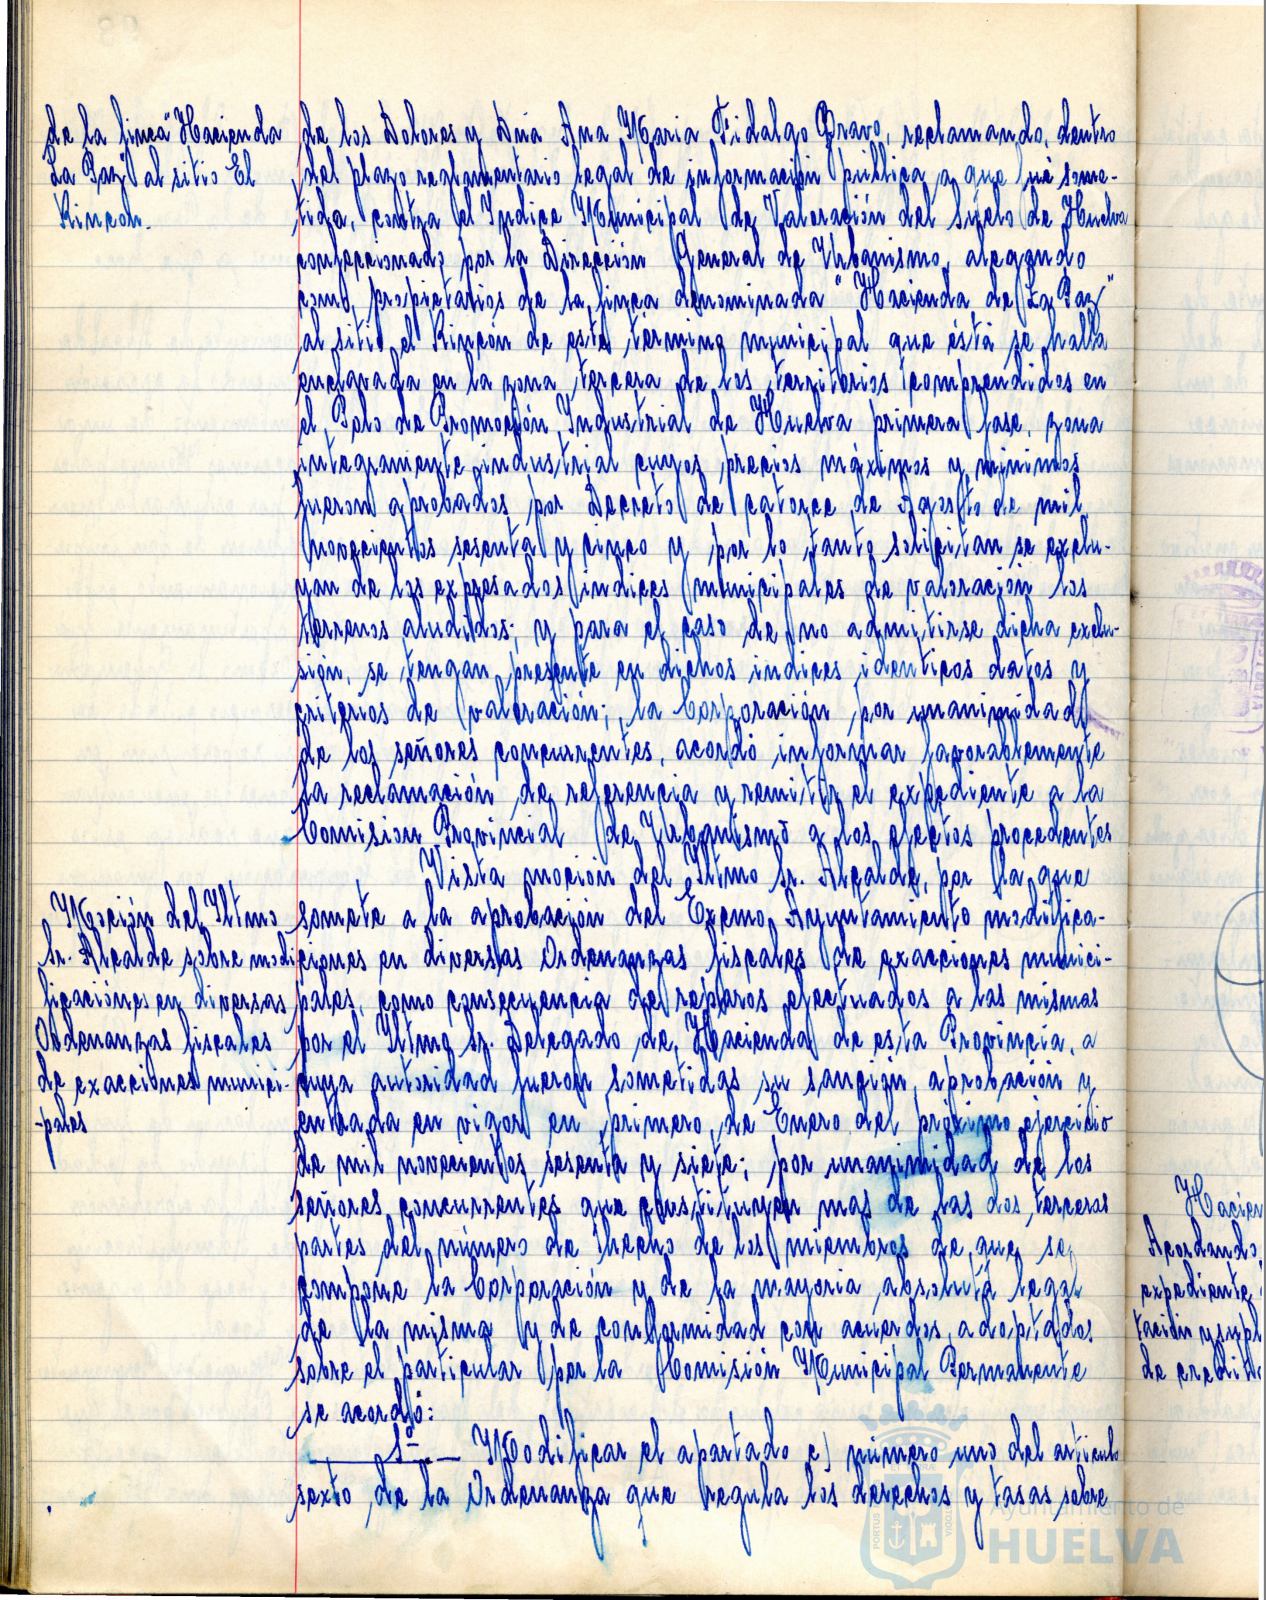 de la finca "Hacienda
La Paz" al sitio El
Rincon.
de los Dolores y Dña Ana Maria Fidalgo Bravo, reclamando, dentro
del plazo reglamentario legal de información pública a que fué some-
tida, contra el Indice Municipal de Valoración del suelo de Huelva
confeccionado por la Dirección General de Urbanismo, alegando
como propietarios de la finca denominada "Hacienda de La Paz"
al sitio el Rincón de este término municipal que ésta se halla
enclavada en la zona tercera de los territorios comprendidos en
el Polo de Promoción Industrial de Huelva primera fase, zona
integramente industrial cuyos precios máximos y minimos
fueron aprobados por Decreto de catorce de Agosto de mil
novecientos sesenta y cinco y por lo tanto solicitan se exclu-
yan de los expresados indices municipales de valoración los
terrenos aludidos; y para el caso de no admitirse dicha exclu-
sión, se tengan presente en dichos indices identicos datos y
criterios de valoración; la Corporación, por unanimidad
de los señores concurrentes, acordó informar favorablemente
la reclamación de referencia y remitir el expediente a la
Comision Provincial de Urbanismo a los efectos procedentes
Moción del Iltmo
Sr. Alcalde sobre modi
ficaciónes en diversas
Ordenanzas fiscales
de exacciones munici-
-pales
Vista moción del Iltmo Sr. Alcalde, por la que
somete a la aprobación del Excmo. Ayuntamiento modifica-
ciones en diversas Ordenanzas fiscales de exacciones munici-
pales, como consecuencia de reparos efectuados a las mismas
por el Iltmo Sr. Delegado de Hacienda de esta Provincia, a
cuya autoridad fueron sometidas su sanción, aprobación y
entrada en vigor en primero de Enero del próximo ejercicio
de mil novecientos sesenta y siete; por unanimidad de los
señores concurrentes que constituyen mas de las dos terceras
partes del número de hecho de los miembros de que se
compone la Corporación y de la mayoria absoluta legal
de la misma y de conformidad con acuerdos adoptados
sobre el particular por la Comisión Municipal Permanente
se acordó:
1º — Modificar el apartado c) número uno del articulo
sexto de la Ordenanza que regula los derechos y tasas sobre
Hacien
Acordando
expediente
tación y supl
de credito
Ayuntamiento de
HUELVA